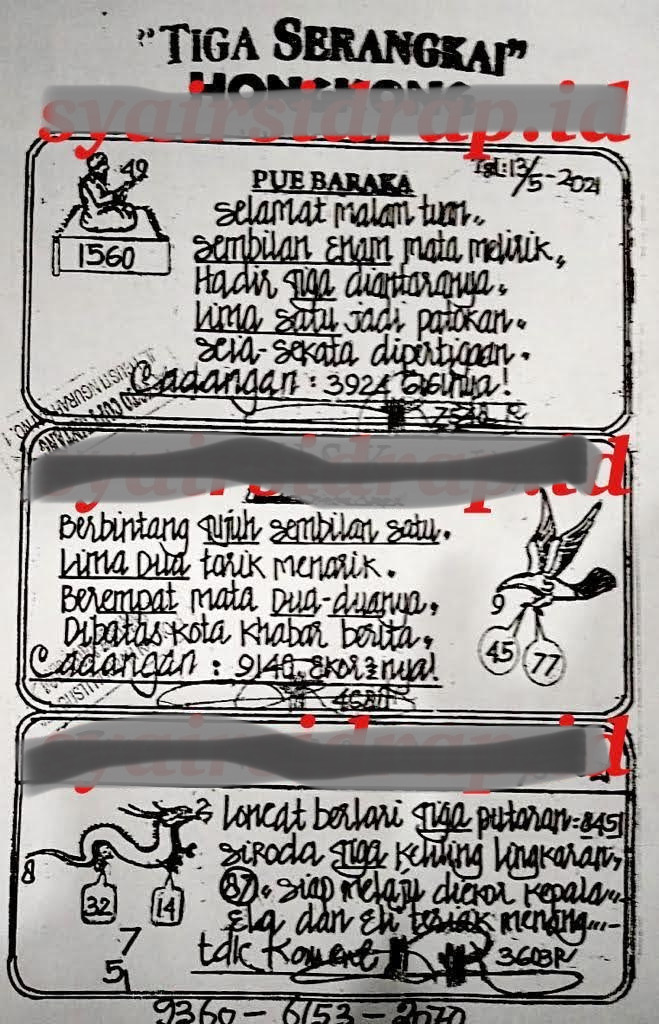 "TIGA SERANGKAI"
HONGKONG
syairsidrap.id
49
1560
Tgl:13/5-2021
PUE BARAKA
Selamat malam tuan..
Sembilan enam mata melirik,,
Hadir tiga diantaranya.
Lima satu jadi patokan.
Seia-sekata dipertigaan.
Cadangan : 3924 isinya!
syairsidrap.id
Berbintang tujuh sembilan satu.
Lima Dua tarik menarik.
Berempat mata Dua-duanya.
Dibatas kota khabar berita,
Cadangan : 9140. Ekor²nya!
9
45
77
syairsidrap.id
Loncat berlari tiga putaran=8451
Siroda tiga keliling lingkaran,
87. siap melaju diekor kepala...
Ela dan Eli teriak menang....
tdk
3603R
2
8
32
14
7
5
9360 - 6153 - 2070